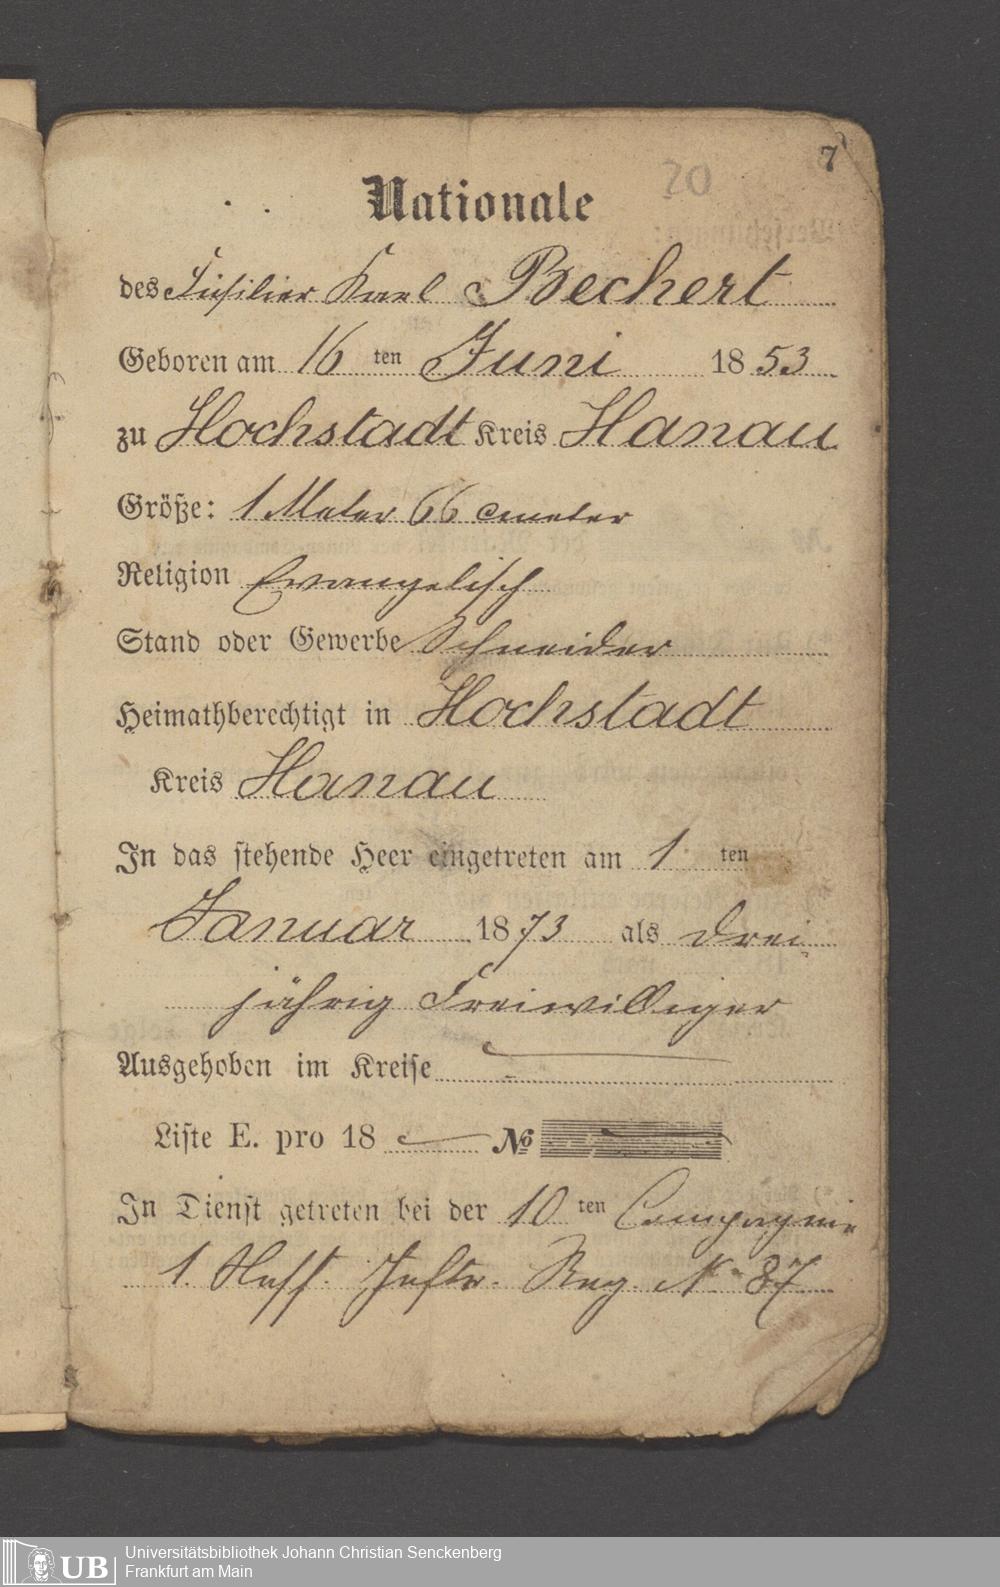 7
20
Nationale
des Füsilier Karl Bechert
Geboren am 16 ten Juni 18 53
zu Hochstadt Kreis Hanau
Größe: 1 Meter 66 cmeter
Religion Evangelisch
Stand oder Gewerbe Schneider
Heimathberechtigt in Hochstadt
Kreis Hanau
In das stehende Heer eingetreten am 1 ten
Januar 1873 als drei
jährig Freiwilliger
Ausgehoben im Kreise
Liste E. pro 18 No
In Dienst getreten bei der 10 ten Compagnie
1. Hess. Inftr. Reg. No 87
UB
Universitätsbibliothek Johann Christian Senckenberg
Frankfurt am Main